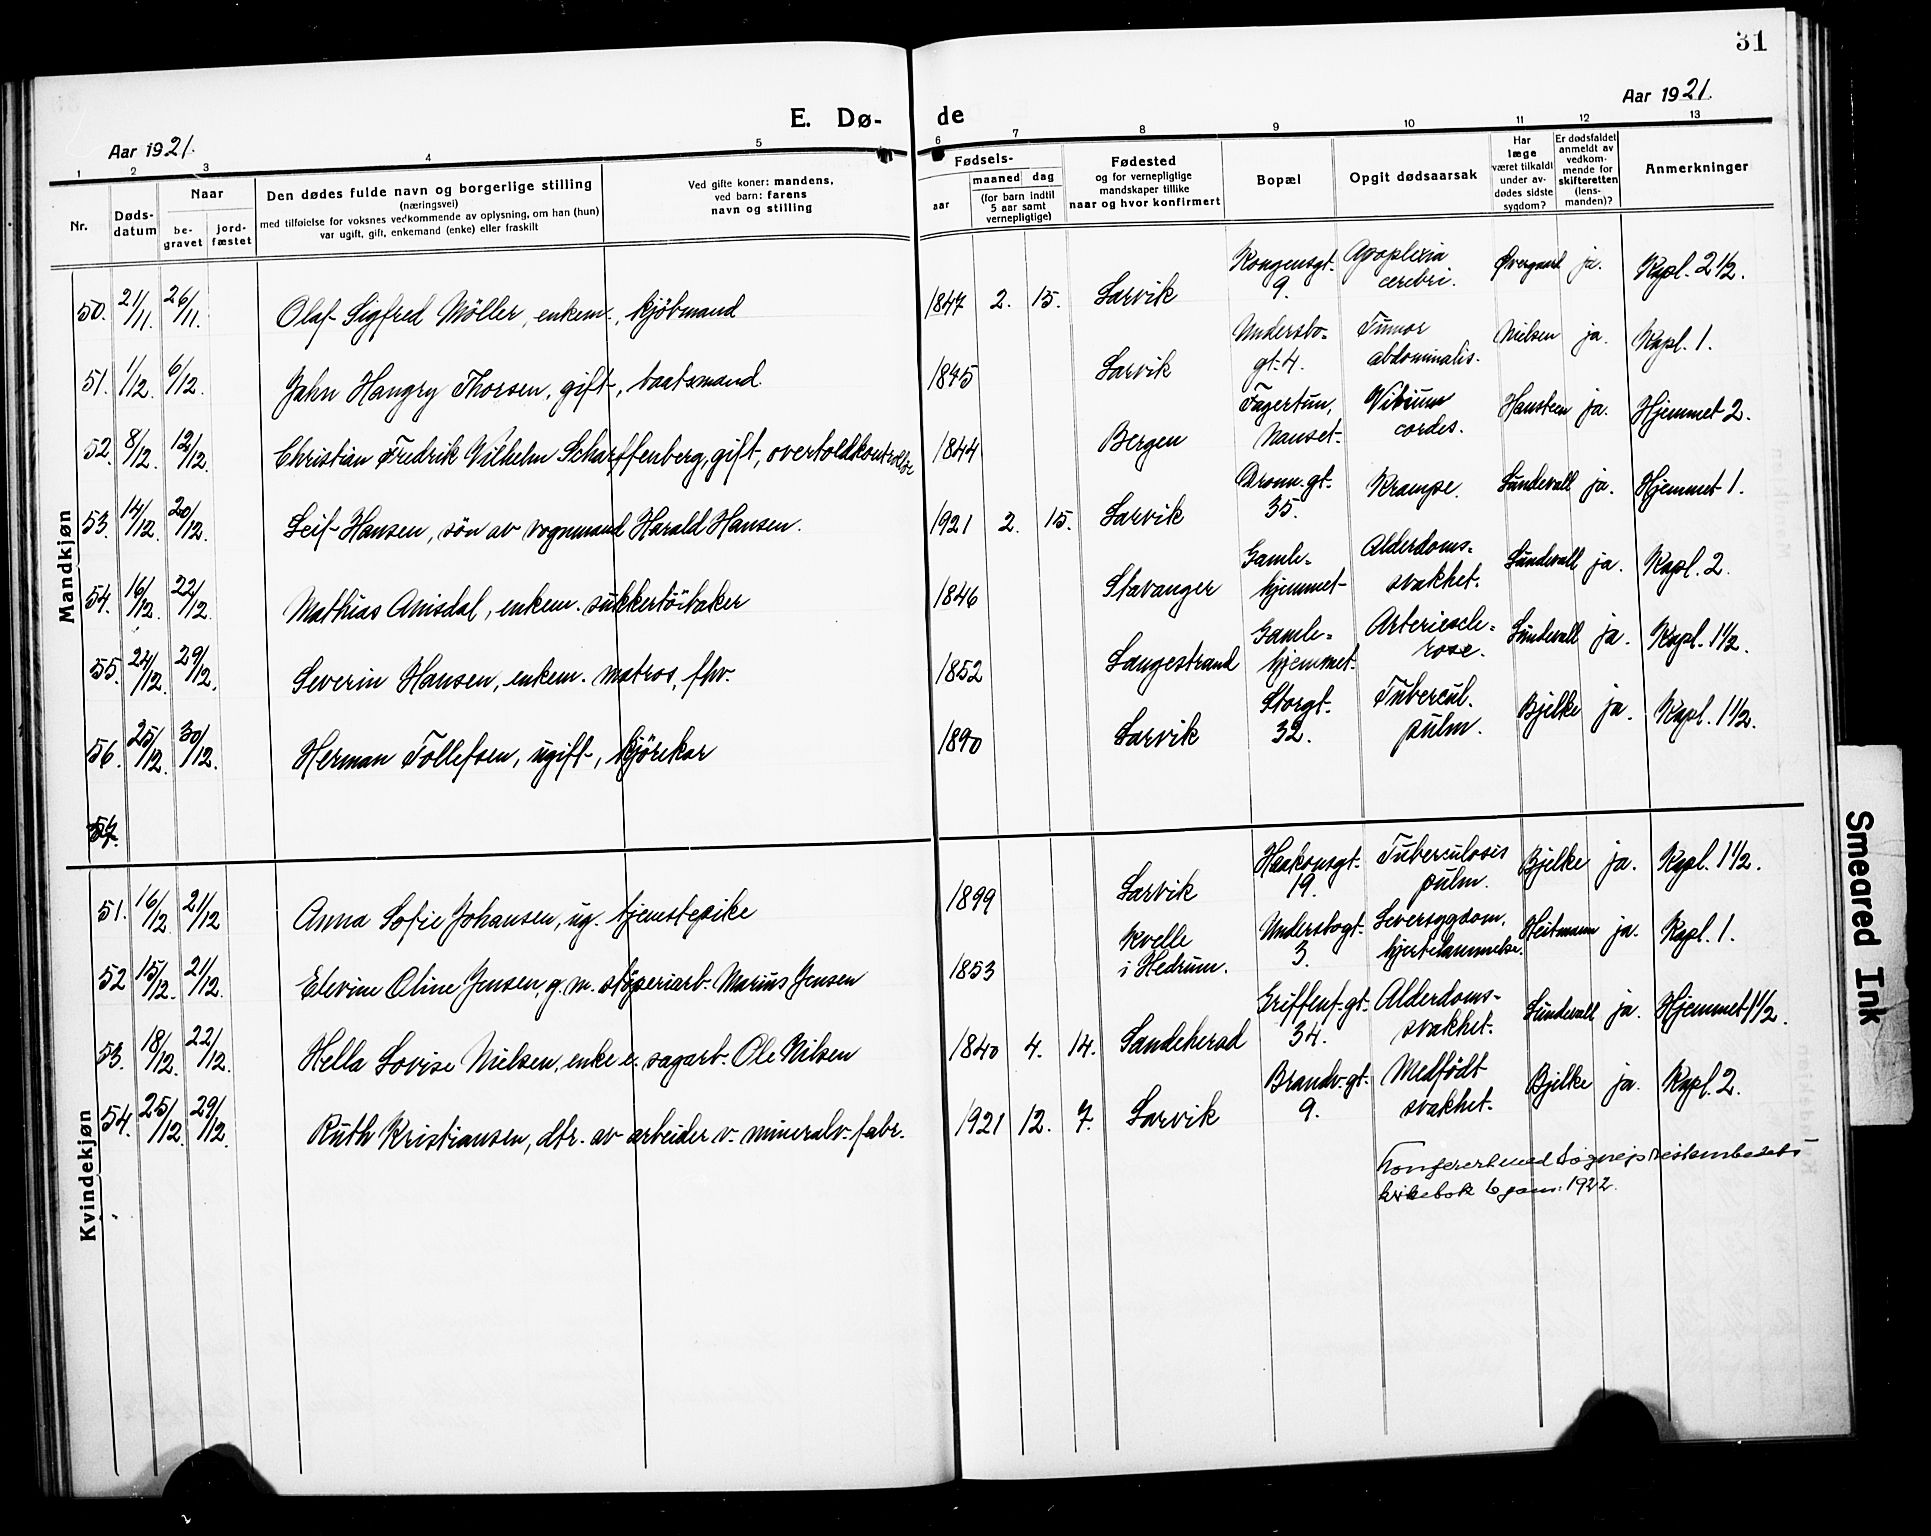 31
Aar 1921.
Aar 1921.
E. Dø-
de
1 2 3 4 5 6 7 8 9 10 11 12 13
Nr.
Døds-
datum
Naar
be-
gravet
jord-
fæstet
Den dødes fulde navn og borgerlige stilling
(næringsvei)
med tilføielse for voksnes vedkommende av oplysning, om han (hun)
var ugift, gift, enkemand (enke) eller fraskilt
Ved gifte koner: mandens,
ved barn: farens
navn og stilling
Fødsels-
aar
maaned dag
(for barn indtil
5 aar samt
vernepligtige)
Fødested
og for vernepligtige
mandskaper tillike
naar og hvor konfirmert
Bopæl
Opgit dødsaarsak
Har
læge
været tilkaldt
under av-
dødes sidste
sygdom?
Er dødsfaldet
anmeldt av
vedkom-
mende for
skifteretten
(lens-
manden)?
Anmerkninger
Mandkjøn
50. 21/11. 26/11. Olaf Sigfred Möller, enkem., kjöbmand 1847 2. 15. Larvik Kongensgt. 9. Apoplexia cerebri. Øvergaard ja. Kapl. 2 1/2.
51. 1/12. 6/12. Jahn Hangry Thorsen, gift, baatsmand. 1845 Larvik Undersbo-gt. 4. Tumor abdominalis. Nielsen ja. Kapl. 1.
52. 8/12. 12/12. Christian Fredrik Vilhelm Scharffenberg, gift, overtoldkontrollør 1844 Bergen Fagertun, Nanset. Vitium cordes. Hansteen ja. Hjemmet 2.
53. 14/12. 20/12. Leif Hansen, sön av vognmand Harald Hansen. 1921 2. 15. Larvik Dronn. gt. 35. Krampe. Sundevall ja. Hjemmet 1.
54. 16/12. 22/12. Mathias Amisdal, enkem. sukkertöibaker 1846 Stavanger Gamle-hjemmet Alderdoms-svakhet. Sundevall ja. Kapl. 2.
55. 24/12. 29/12. Severin Hansen, enkem. matros, fhv. 1852 Langestrand Gamle-hjemmet. Arteriescle-rose. Sundevall ja. Kapl. 1 1/2.
56. 25/12. 30/12. Herman Tollefsen, ugift, kjörekar 1890 Larvik Storgt. 32. Tubercul. pulm. Bjelke ja. Kapl. 1 1/2.
57.
Kvindekjøn
51. 16/12. 21/12 Anna Sofie Johansen, ug. tjenstepike 1899 Larvik Haakonsgt. 19. Tuberculosis pulm. Bjelke ja. Kapl. 1 1/2.
52 15/12. 21/12. Elevine Oline Jensen, g. m. stöperiarb. Marius Jensen 1853 Kvelle i Hedrum. Undersbogt. 3. Leversygdom, hjertelammelse. Heitmann ja. Kapl. 1.
53. 18/12. 22/12. Hella Lovise Nielsen, enke e. sagarb. Ole Nilsen 1840 4. 14. Sandeherad Griffenf. gt. 34. Alderdoms-svakhet. Sundevall ja. Hjemmet 1 1/2.
54. 25/12. 29/12. Ruth Kristiansen, dtr. av arbeider v. mineralv. fabr. 1921 12. 7. Larvik Brandv. gt. 9. Medfödt svakhet. Bjelke ja. Kapl. 2.
Konferert med sogneprestembedets
kirkebok 6 jan. 1922.
Smeared Ink